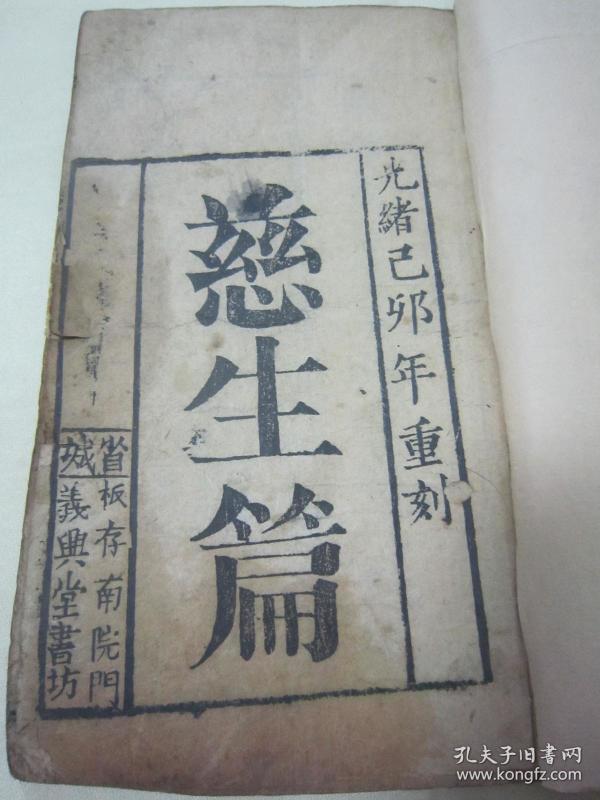 光緒己卯年重刻
慈生篇
省城
板存南院門
義興堂書坊
孔夫子旧书网
www.kongfz.com